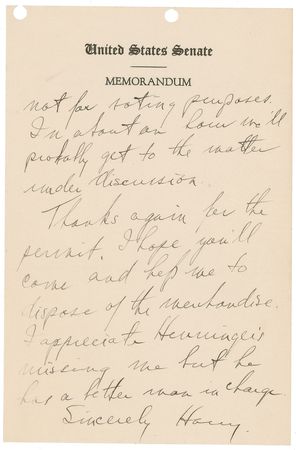 United States Senate
MEMORANDUM
not for voting purposes.
In about an hour we'll
probally get to the matter
under discussion.
Thanks again for the
permit. I hope you'll
come and help me to
dispose of the merchandise.
I appreciate Henninge's
missing me but he
has a better man in charge.
Sincerely Harry.